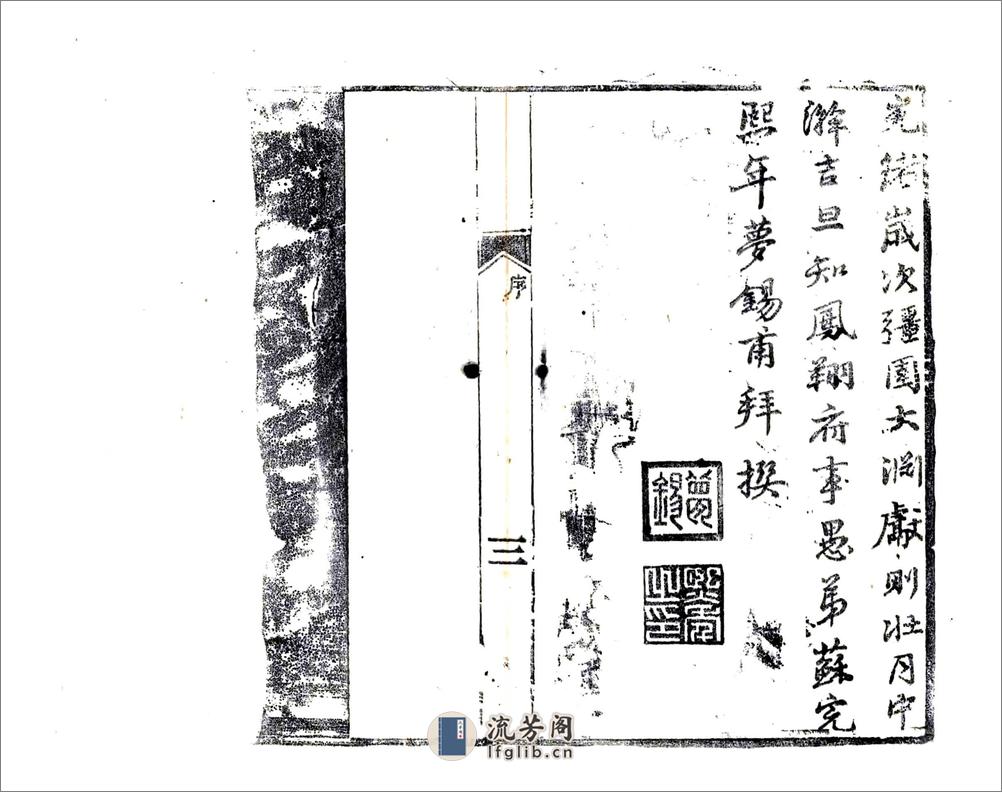 光緒歲次彊圉大淵獻則壯月中
澣吉旦知鳳翔府事愚弟蘇完
熙年夢錫甫拜撰
夢錫
熙年之印
序
三
流芳阁
lfglib.cn